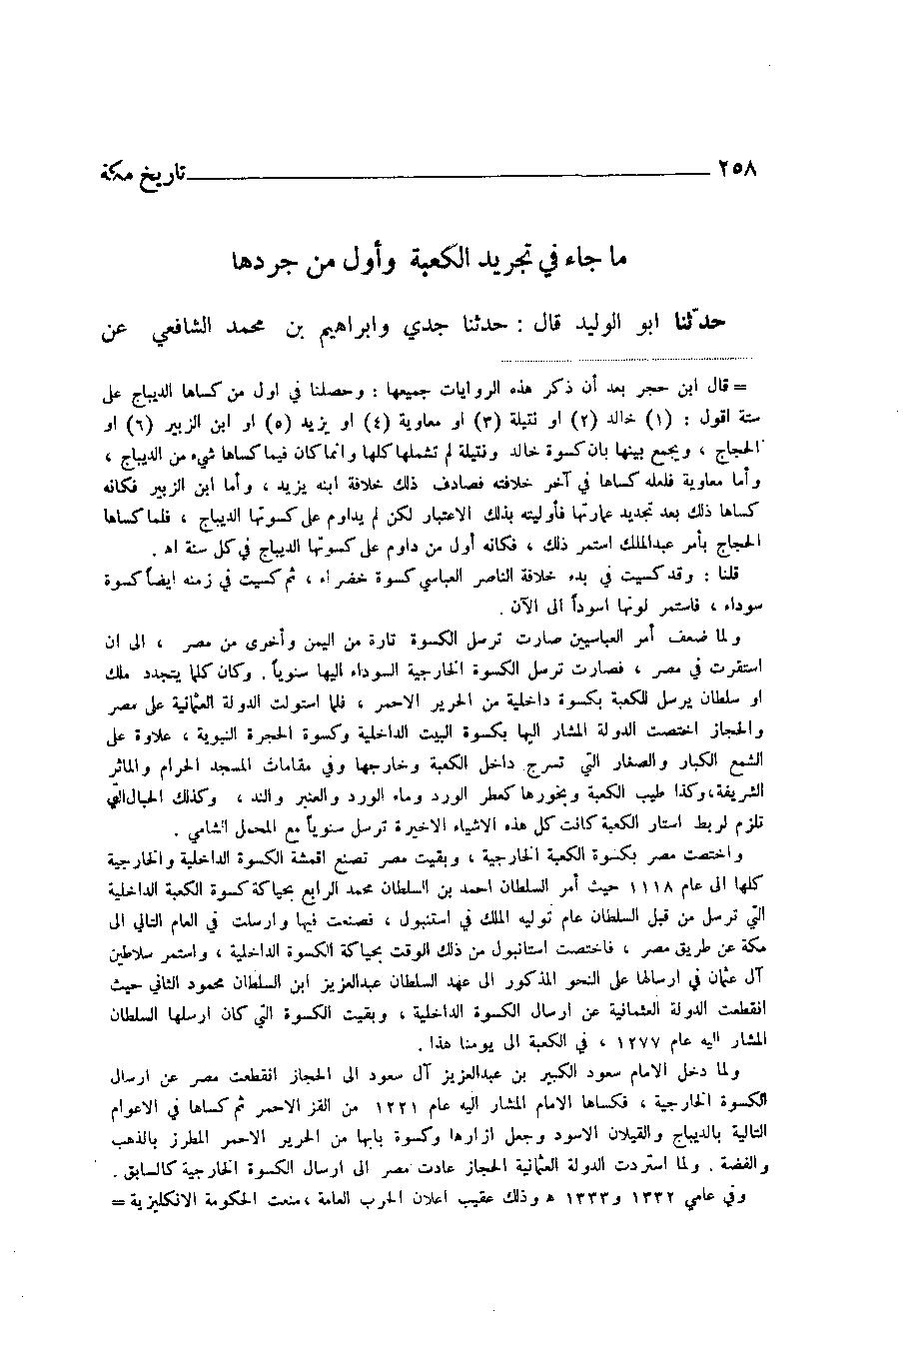 ٢٥٨ تاريخ مكة
ما جاء في تجريد الكعبة وأول من جردها
حدّثنا ابو الوليد قال : حدثنا جدي وابراهيم بن محمد الشافعي عن
= قال ابن حجر بعد أن ذكر هذه الروايات جميعها : وحصلنا في اول من كساها الديباج على
ستة اقول : (١) خالد (٢) او نتيلة (٣) او معاوية (٤) او يزيد (٥) او ابن الزبير (٦) او
الحجاج ، ويجمع بينها بان كسوة خالد ونتيلة لم تشملها كلها وانما كان فيما كساها شيء من الديباج ،
وأما معاوية فلعله كساها في آخر خلافته فصادف ذلك خلافة ابنه يزيد ، وأما ابن الزبير فكانه
كساها ذلك بعد تجديد عمارتها فأوليته بذلك الاعتبار لكن لم يداوم على كسوتها الديباج ، فلما كساها
الحجاج بأمر عبدالملك استمر ذلك ، فكانه أول من داوم على كسوتها الديباج في كل سنة اه .
قلنا : وقد كسيت في بدء خلافة الناصر العباسي كسوة خضراء ، ثم كسيت في زمنه ايضاً كسوة
سوداء ، فاستمر لونها اسوداً الى الآن .
ولما ضعف أمر العباسيين صارت ترسل الكسوة تارة من اليمن وأخرى من مصر ، الى ان
استقرت في مصر ، فصارت ترسل الكسوة الخارجية السوداء اليها سنوياً . وكان كلما يتجدد ملك
او سلطان يرسل للكعبة بكسوة داخلية من الحرير الاحمر ، فلما استولت الدولة العثمانية على مصر
والحجاز اختصت الدولة المشار اليها بكسوة البيت الداخلية وكسوة الحجرة النبوية ، علاوة على
الشمع الكبار والصغار التي تسرج داخل الكعبة وخارجها وفي مقامات المسجد الحرام والماثر
الشريفة ، وكذا طيب الكعبة وبخورها كعطر الورد وماء الورد والعنبر والند ، وكذلك الحبال التي
تلزم لربط استار الكعبة كانت كل هذه الاشياء الاخيرة ترسل سنوياً مع المحمل الشامي .
واختصت مصر بكسوة الكعبة الخارجية ، وبقيت مصر تصنع اقمشة الكسوة الداخلية والخارجية
كلها الى عام ١١١٨ حيث أمر السلطان احمد بن السلطان محمد الرابع بحياكة كسوة الكعبة الداخلية
التي ترسل من قبل السلطان عام توليه الملك في استنبول ، فصنعت فيها وارسلت في العام التالي الى
مكة عن طريق مصر ، فاختصت استانبول من ذلك الوقت بحياكة الكسوة الداخلية ، واستمر سلاطين
آل عثمان في ارسالها على النحو المذكور الى عهد السلطان عبدالعزيز ابن السلطان محمود الثاني حيث
انقطعت الدولة العثمانية عن ارسال الكسوة الداخلية ، وبقيت الكسوة التي كان ارسلها السلطان
المشار اليه عام ١٢٧٧ ، في الكعبة الى يومنا هذا .
ولما دخل الامام سعود الكبير بن عبدالعزيز آل سعود الى الحجاز انقطعت مصر عن ارسال
الكسوة الخارجية ، فكساها الامام المشار اليه عام ١٢٢١ من القز الاحمر ثم كساها في الاعوام
التالية بالديباج والقيلان الاسود وجعل ازارها وكسوة بابها من الحرير الاحمر المطرز بالذهب
والفضة . ولما استردت الدولة العثمانية الحجاز عادت مصر الى ارسال الكسوة الخارجية كالسابق .
وفي عامي ١٣٣٢ و١٣٣٣ ه وذلك عقيب اعلان الحرب العامة ، منعت الحكومة الانكليزية =